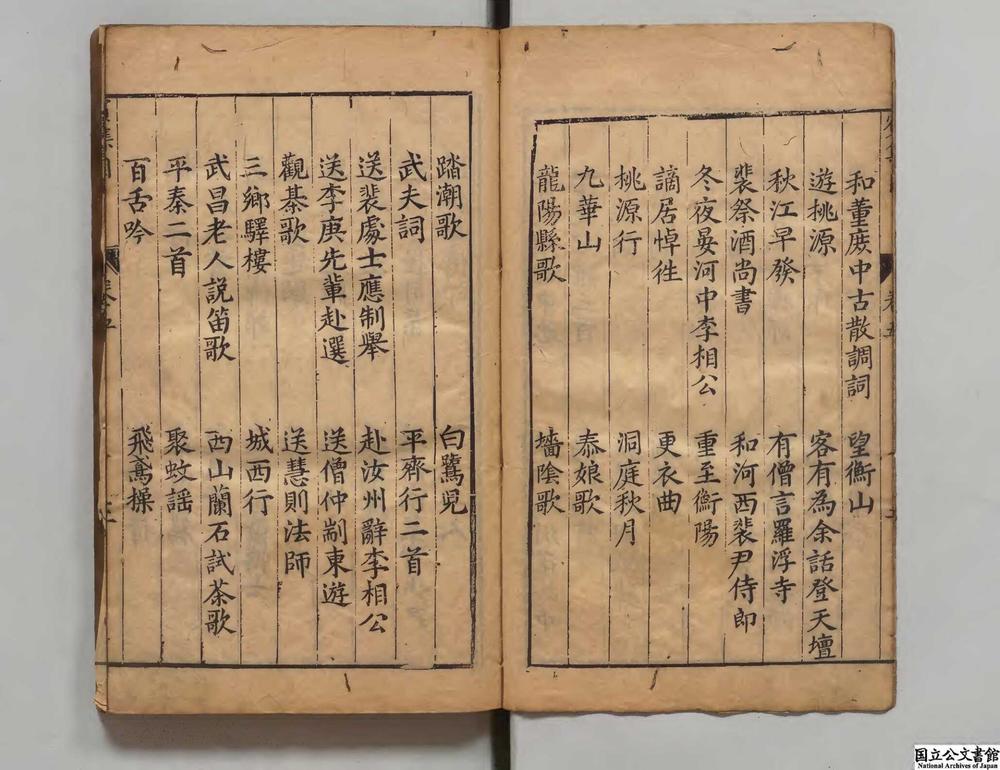 和董庻中古散調詞　望衡山
遊桃源　客有為余話登天壇
秋江早發　有僧言羅浮寺
裴祭酒尚書　和河西裴尹侍郎
冬夜晏河中李相公　重至衡陽
謫居悼徃　更衣曲
桃源行　洞庭秋月
九華山　泰娘歌
龍陽縣歌　墻陰歌
踏潮歌　白鷺兒
武夫詞　平齊行二首
送裴處士應制舉　赴汝州辭李相公
送李庚先輩赴選　送僧仲剬東遊
觀棊歌　送慧則法師
三鄉驛樓　城西行
武昌老人説笛歌　西山蘭石試茶歌
平秦二首　聚蚊謡
百舌吟　飛鳶操
国立公文書館
National Archives of Japan